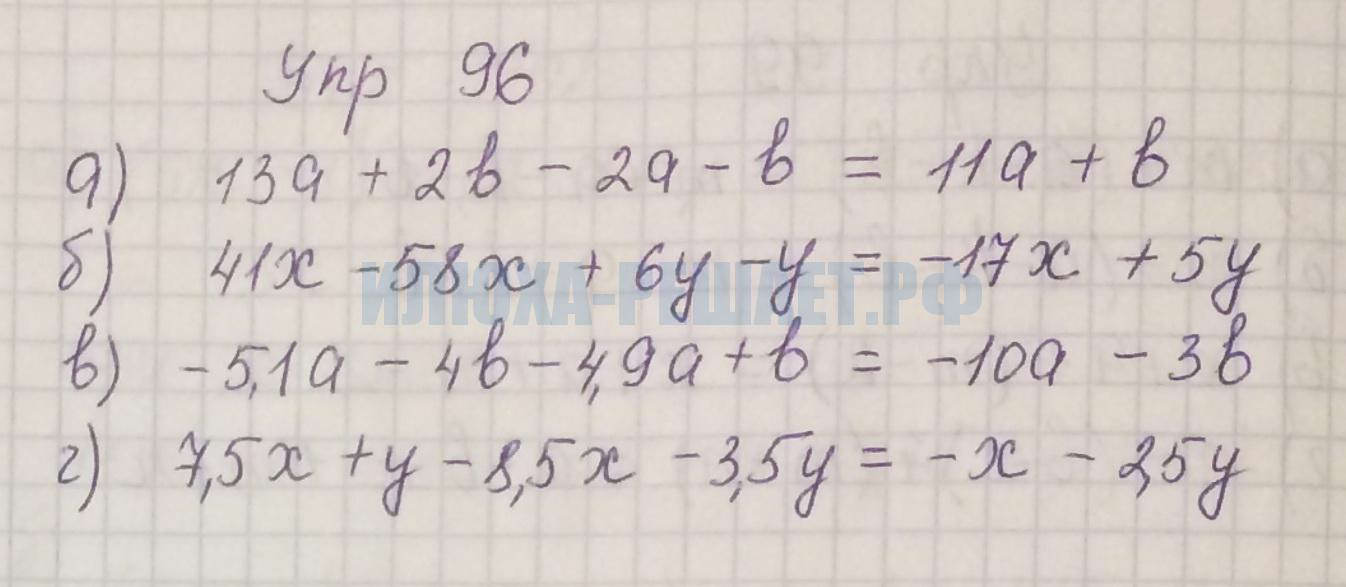 Упр 96
а) 13a + 2b - 2a - b = 11a + b
б) 41x - 58x + 6y - y = -17x + 5y
ИЛЮХА-РЕШАЕТ.РФ
в) -5,1a - 4b - 4,9a + b = -10a - 3b
г) 7,5x + y - 8,5x - 3,5y = -x - 2,5y